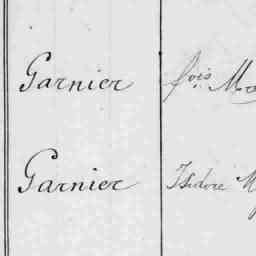 Garnier fois
Garnier Isidore